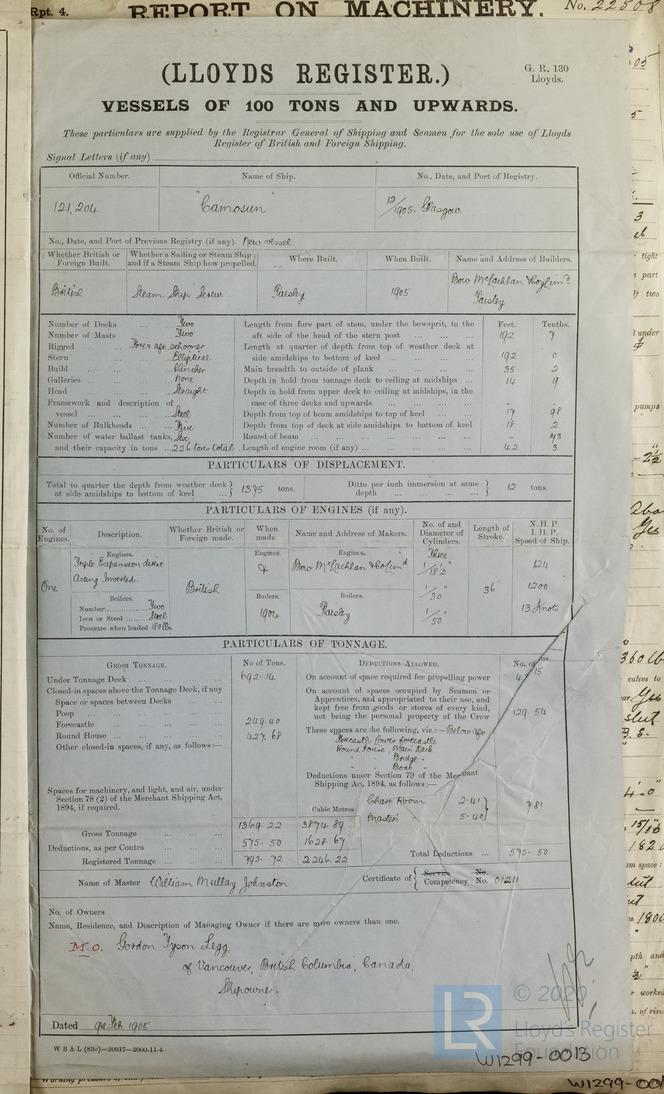 Rpt. 4. REPORT ON MACHINERY. No. 22508
(LLOYDS REGISTER.)
G. R. 130
Lloyds.
VESSELS OF 100 TONS AND UPWARDS.
These particulars are supplied by the Registrar General of Shipping and Seamen for the sole use of Lloyds
Register of British and Foreign Shipping.
Signal Letters (if any)
Official Number. Name of Ship. No., Date, and Port of Registry.
121,204 "Camosun" 12/1905. Glasgow
No., Date, and Port of Previous Registry (if any). New vessel
Whether British or Foreign Built. Whether a Sailing or Steam Ship; and if a Steam Ship how propelled. Where Built. When Built. Name and Address of Builders.
British Steam Ship Screw Paisley 1905 Bow McLachlan & Co Limd Paisley
Number of Decks ... Two
Number of Masts ... Two
Rigged ... Fore & aft schooner
Stern ... Elliptical
Build ... Clencher
Galleries ... None
Head ... Straight
Framework and description of
vessel ... Steel
Number of Bulkheads ... Five
Number of water ballast tanks, Six
and their capacity in tons ... 226 tons total
Feet. Tenths.
Length from fore part of stem, under the bowsprit, to the
aft side of the head of the stern post ... 192 7
Length at quarter of depth from top of weather deck at
side amidships to bottom of keel ... 192 0
Main breadth to outside of plank ... 35 2
Depth in hold from tonnage deck to ceiling at midships ... 14 9
Depth in hold from upper deck to ceiling at midships, in the
case of three decks and upwards ... - -
Depth from top of beam amidships to top of keel ... 17 98
Depth from top of deck at side amidships to bottom of keel 18 2
Round of beam ... - 73
Length of engine room (if any) ... 42 3
PARTICULARS OF DISPLACEMENT.
Total to quarter the depth from weather deck at side amidships to bottom of keel ... 1375 tons.
Ditto per inch immersion at same depth ... 12 tons.
PARTICULARS OF ENGINES (if any).
No. of Engines. Description. Whether British or Foreign made. When made. Name and Address of Makers. No. of and Diameter of Cylinders. Length of Stroke. N. H. P. I. H. P. Speed of Ship.
One
Engines.
Triple Expansion direct
Acting Inverted.
Boilers.
Number Two
Iron or Steel Steel
Pressure when loaded 180 lbs.
British
Engines.
&
Boilers.
1904
Engines.
Bow McLachlan & Co Limd
Boilers.
Paisley
Three
1/18½"
1/30"
1/50"
36"
124
1200
13 Knots
PARTICULARS OF TONNAGE.
GROSS TONNAGE. No of Tons.
Under Tonnage Deck ... 692.14
Closed-in spaces above the Tonnage Deck, if any
Space or spaces between Decks ...
Poop ...
Forecastle ... 249.40
Round House ... 427.68
Other closed-in spaces, if any, as follows:—
Spaces for machinery, and light, and air, under
Section 78 (2) of the Merchant Shipping Act,
1894, if required.
Cubic Metres
Gross Tonnage ... 1369.22 3874.89
Deductions, as per Contra ... 575.50 1628.67
Registered Tonnage ... 793.72 2246.22
DEDUCTIONS ALLOWED. No. of Tons
On account of space required for propelling power
On account of spaces occupied by Seamen or
Apprentices, and appropriated to their use, and
kept free from goods or stores of every kind,
not being the personal property of the Crew 129.54
These spaces are the following, viz.:— Below after
Forecastle, lower forecastle
Round house, Main Deck
" " Bridge "
" " Boat "
Deductions under Section 79 of the Merchant
Shipping Act, 1894, as follows:—
Chart Room 2.41
Master's " 5.40
7.81
Total Deductions ... 575.50
Name of Master William Mullay Johnston
Certificate of Service No. Competency No. 01211
No. of Owners
Name, Residence, and Description of Managing Owner if there are more owners than one.
M.O. Gordon Tyson Legg,
of Vancouver, British Columbia, Canada,
Shipowner.
Dated 9th Feb 1905
W B & L (83o)—20917—2000-11-4
© 2020
Lloyd's Register
Foundation
W1299-0013